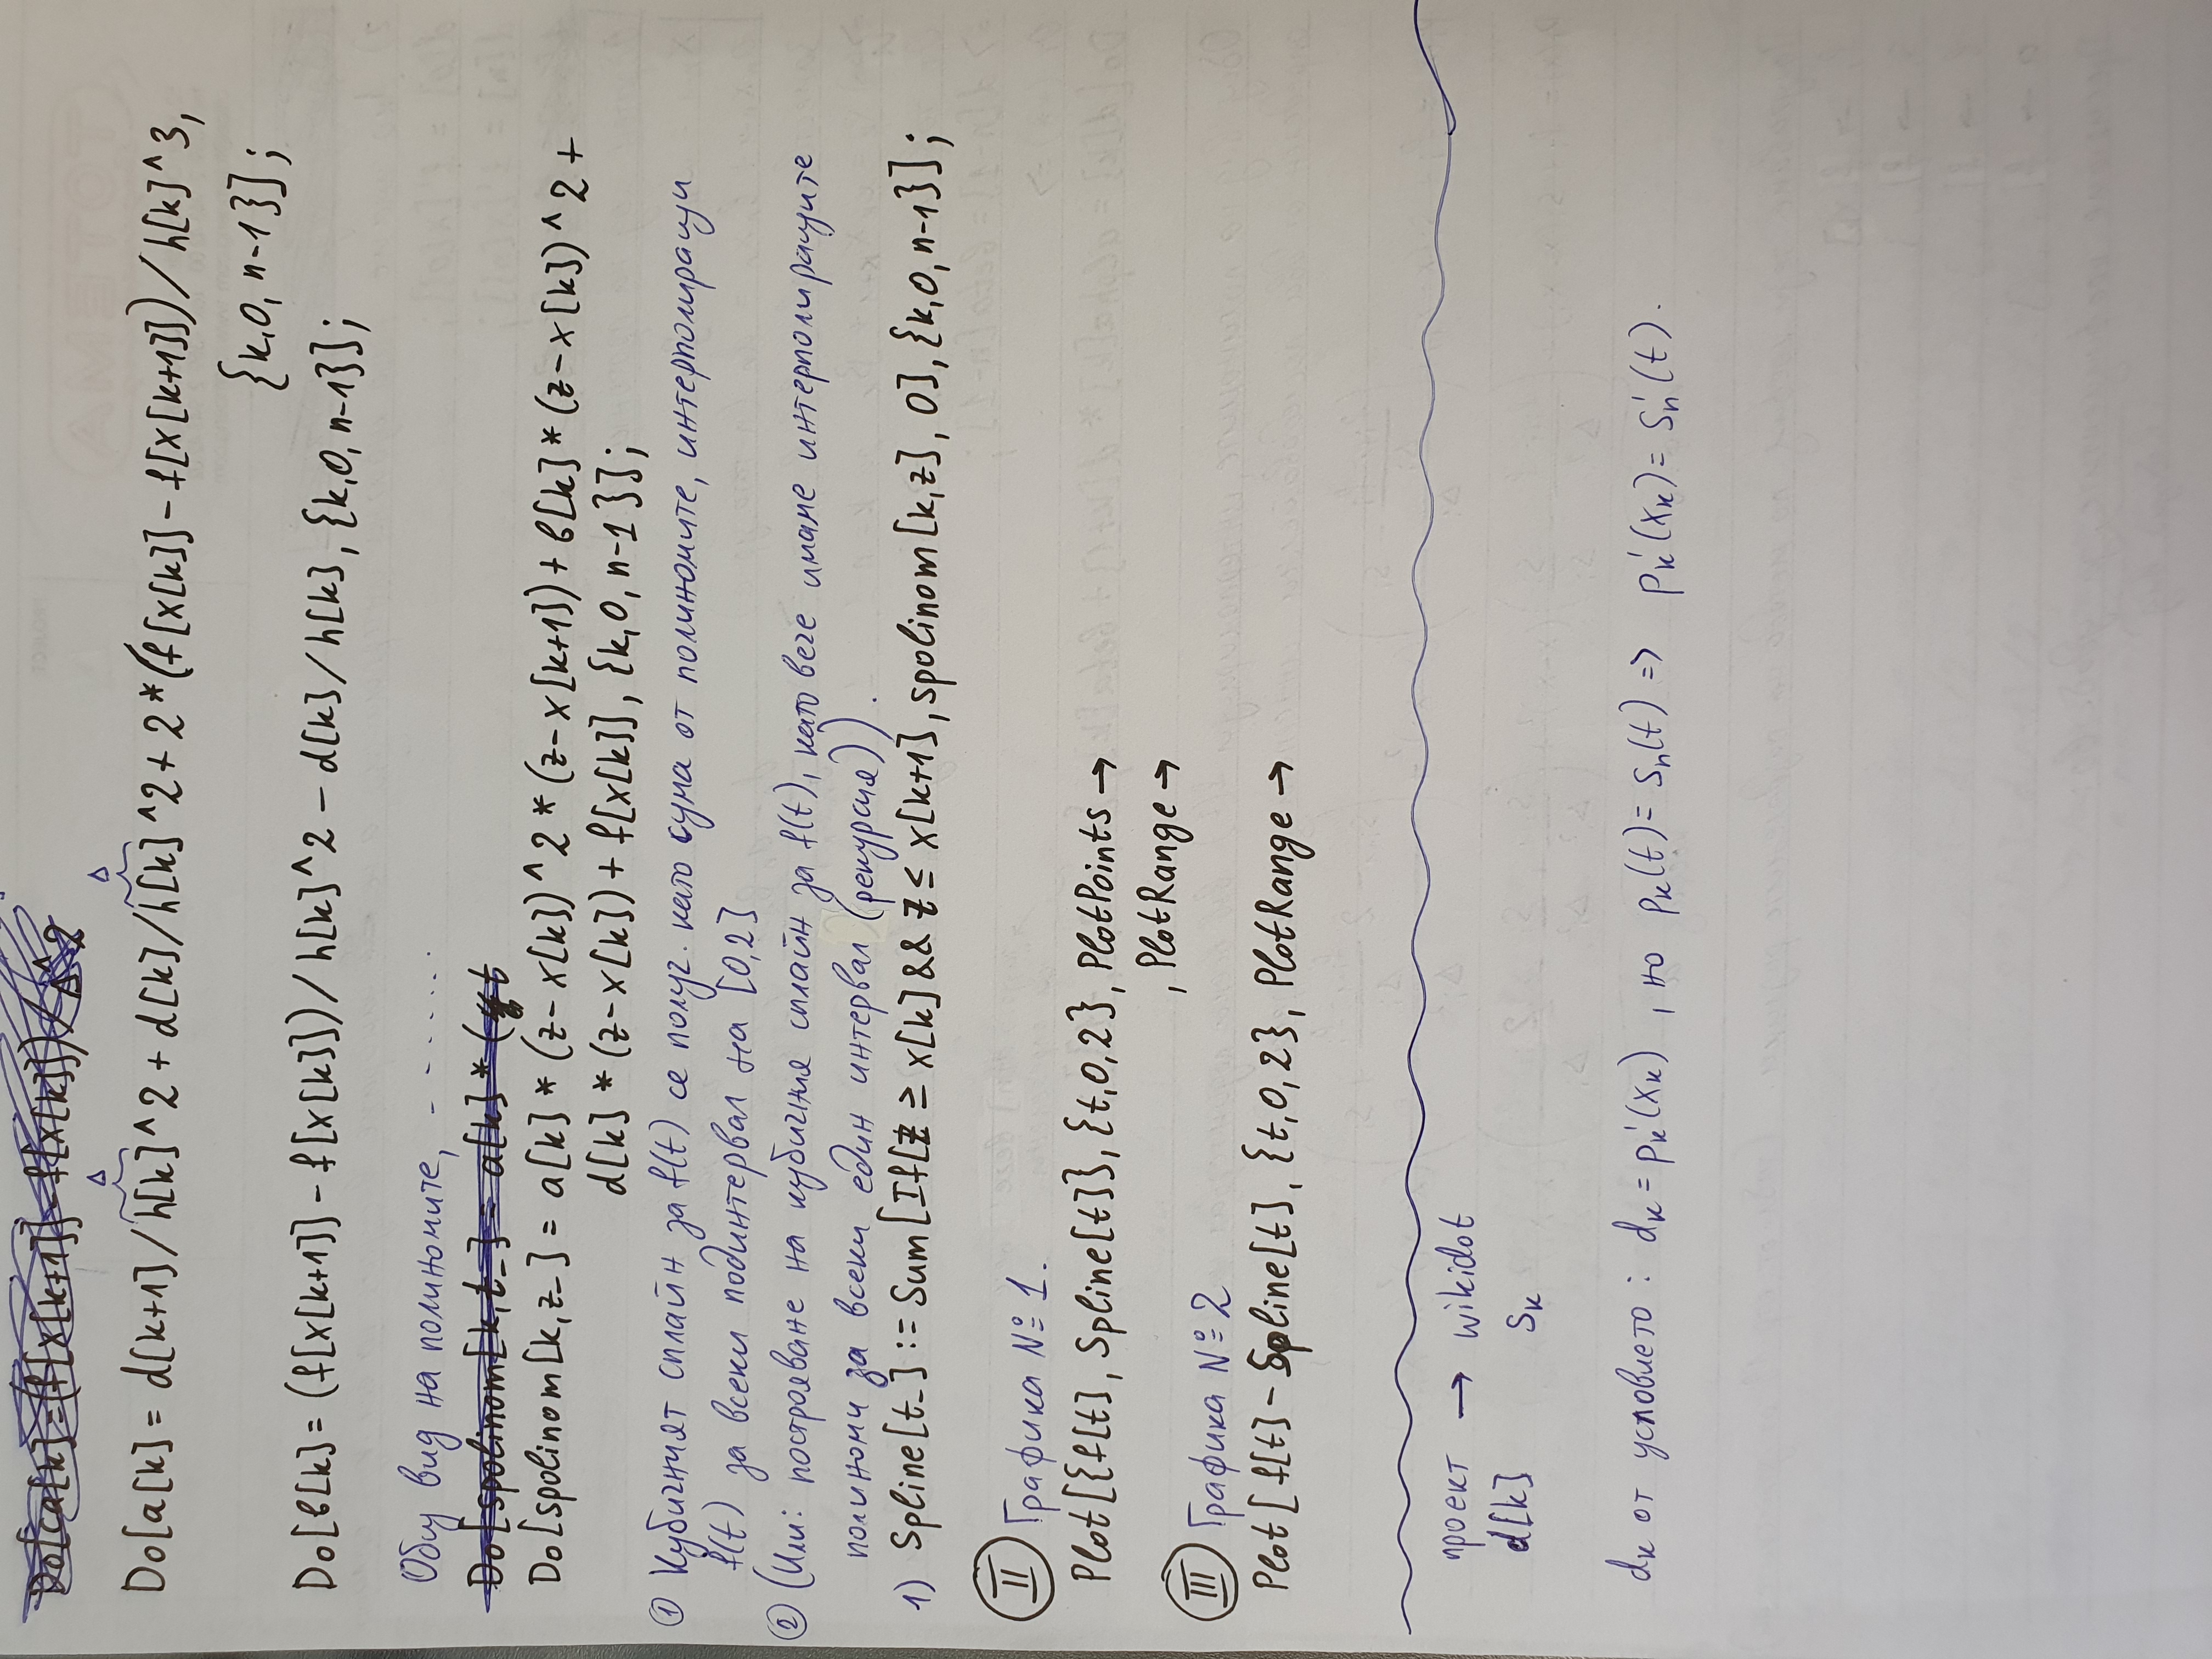 Do[ca[k]=(f[x[k+1]]-f[x[k]])/Δ^2
Δ Δ
Do[a[k] = d[k+1]/h[k]^2 + d[k]/h[k]^2 + 2*(f[x[k]] - f[x[k+1]])/h[k]^3,
{k,0,n-1}];
Do[b[k] = (f[x[k+1]] - f[x[k]])/h[k]^2 - d[k]/h[k], {k,0,n-1}];
Общ вид на полиномите, - - . . . . .
Do[spolinom[k,t_] = a[k]*(t
Do[spolinom[k,z_] = a[k]*(z-x[k])^2*(z-x[k+1]) + b[k]*(z-x[k])^2 +
d[k]*(z-x[k]) + f[x[k]], {k,0,n-1}];
① Кубичният сплайн за f(t) се получ. като сума от полиномите, интерполиращи
f(t) за всеки подинтервал на [0,2]
② (Или: построяване на кубичния сплайн за f(t), като вече имаме интерполиращите
полиноми за всеки един интервал (рекурсия)).
1) Spline[t_] := Sum[If[z ≥ x[k] && z ≤ x[k+1], spolinom[k,z], 0], {k,0,n-1}];
II Графика № 1.
Plot[{f[t], Spline[t]}, {t,0,2}, PlotPoints →
, PlotRange →
III Графика № 2
Plot[f[t] - Spline[t], {t,0,2}, PlotRange →
проект → wikidot
d[k] sₖ
dₖ от условието : dₖ = pₖ'(xₖ) , но pₖ(t) = sₙ(t) => pₖ'(xₖ) = sₙ'(t).